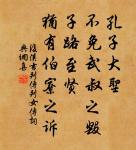 孔子大聖
不免武叔之毀
子路至賢
猶有伯寮之訴
後漢書列傳列女傳詞
典網